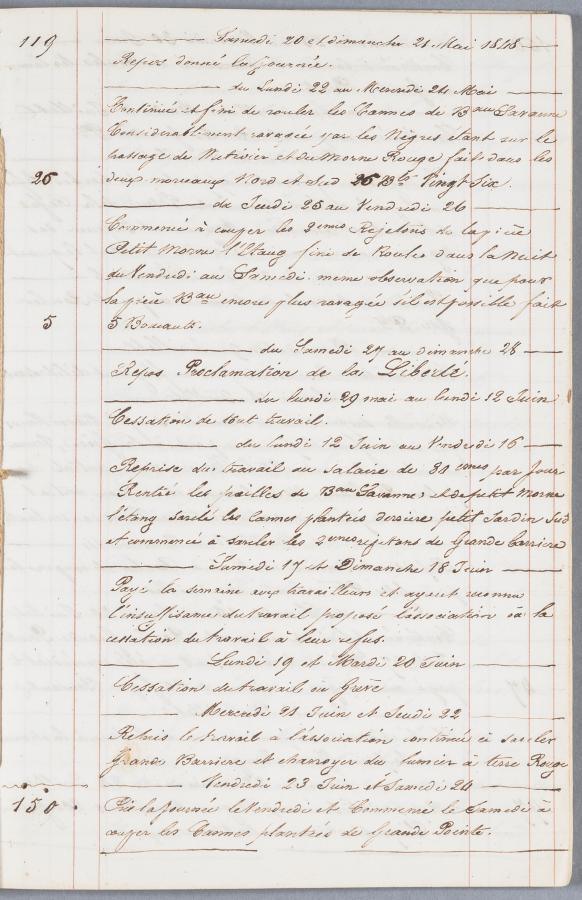 119 Samedi 20 et dimanche 21 Mai 1848
Repos donné la journée.
du Lundi 22 au Mercredi 24 Mai
Continué et fini de rouler les Cannes de Bau Savanne
Considerablement ravagée par les Nègres étant sur le
passage de Metivier et du Morne Rouge fait dans les
26 deux morceaux Nord et Sud 26 Bts Vingt Six.
du Jeudi 25 au Vendredi 26
Commencé à couper les 2emes Rejetons de la pièce
Petit Morne l'Etang fini de Rouler dans la Nuit
du Vendredi au Samedi. meme observation que pour
la pièce Bau encore plus ravagée s'il est possible fait
5 5 Boucauts.
du Samedi 27 au dimanche 28
Repos Proclamation de la Liberté.
du lundi 29 mai au lundi 12 Juin
Cessation de tout travail.
du lundi 12 Juin au Vendredi 16
Reprise du travail au salaire de 80 cmes par Jour
Rentré les pailles de Bau Savanne et de petit Morne
l'étang sarclé les Cannes plantées derrière petit Jardin Sud
et commencé à sarcler les 2emes rejetons de Grande Barriere
Samedi 17 et Dimanche 18 Juin
Payé la semaine aux travailleurs et ayant reconnu
l'insuffisance du travail proposé l'association à la
cessation du travail à leur refus.
Lundi 19 et Mardi 20 Juin
Cessation du travail en Grève
Mercredi 21 Juin et Jeudi 22
Repris le travail à l'association continué à sarcler
Grande Barriere et charroyer du fumier à terre Rouge
Vendredi 23 Juin et Samedi 24
150 la journée le Vendredi et Commencé le Samedi à
couper les Cannes plantées de Grande Pointe.